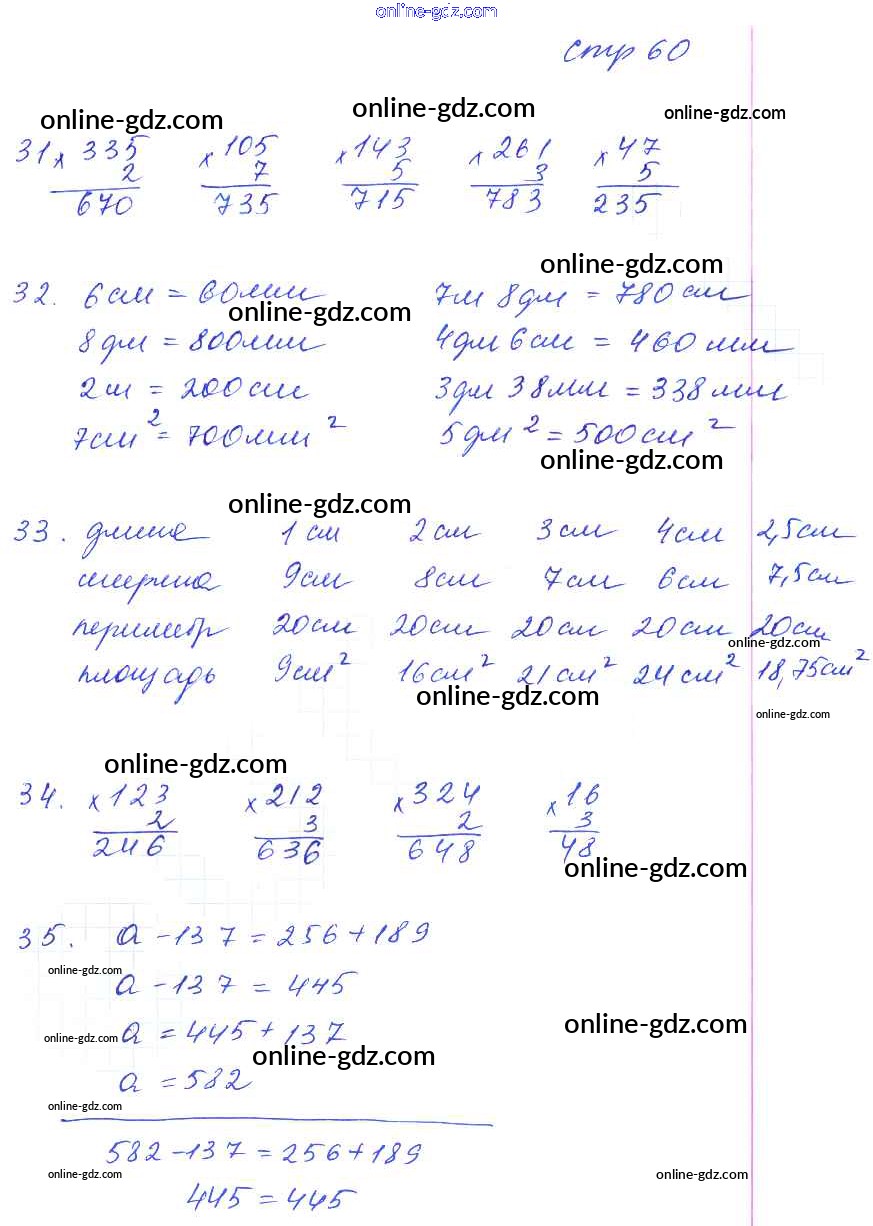 online-gdz.com
стр 60
online-gdz.com online-gdz.com online-gdz.com
31 × 335 × 105 × 143 × 261 × 47
2 7 5 3 5
670 735 715 783 235
online-gdz.com
32. 6 см = 60 мм 7м 8 дм = 780 см
online-gdz.com
8 дм = 800 мм 4 дм 6 см = 460 мм
2 м = 200 см 3 дм 38 мм = 338 мм
7 см² = 700 мм² 5 дм² = 500 см²
online-gdz.com
online-gdz.com
33. длина 1 см 2 см 3 см 4 см 2,5 см
ширина 9 см 8 см 7 см 6 см 7,5 см
периметр 20 см 20 см 20 см 20 см 20 см
online-gdz.com
площадь 9 см² 16 см² 21 см² 24 см² 18,75 см²
online-gdz.com
online-gdz.com
online-gdz.com
34. × 123 × 212 × 324 × 16
2 3 2 3
246 636 648 48
online-gdz.com
35. a - 137 = 256 + 189
online-gdz.com
a - 137 = 445
online-gdz.com
online-gdz.com a = 445 + 137
online-gdz.com
a = 582
online-gdz.com
582 - 137 = 256 + 189
online-gdz.com online-gdz.com
445 = 445